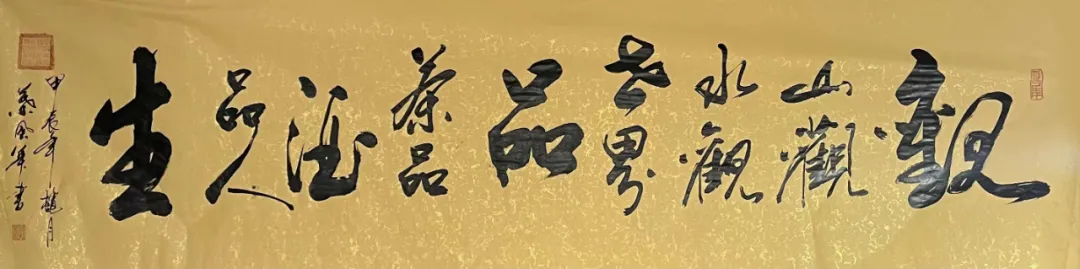 觀
山觀
水觀
世界
品
茶品
酒
品人
生
甲辰年龍月
書